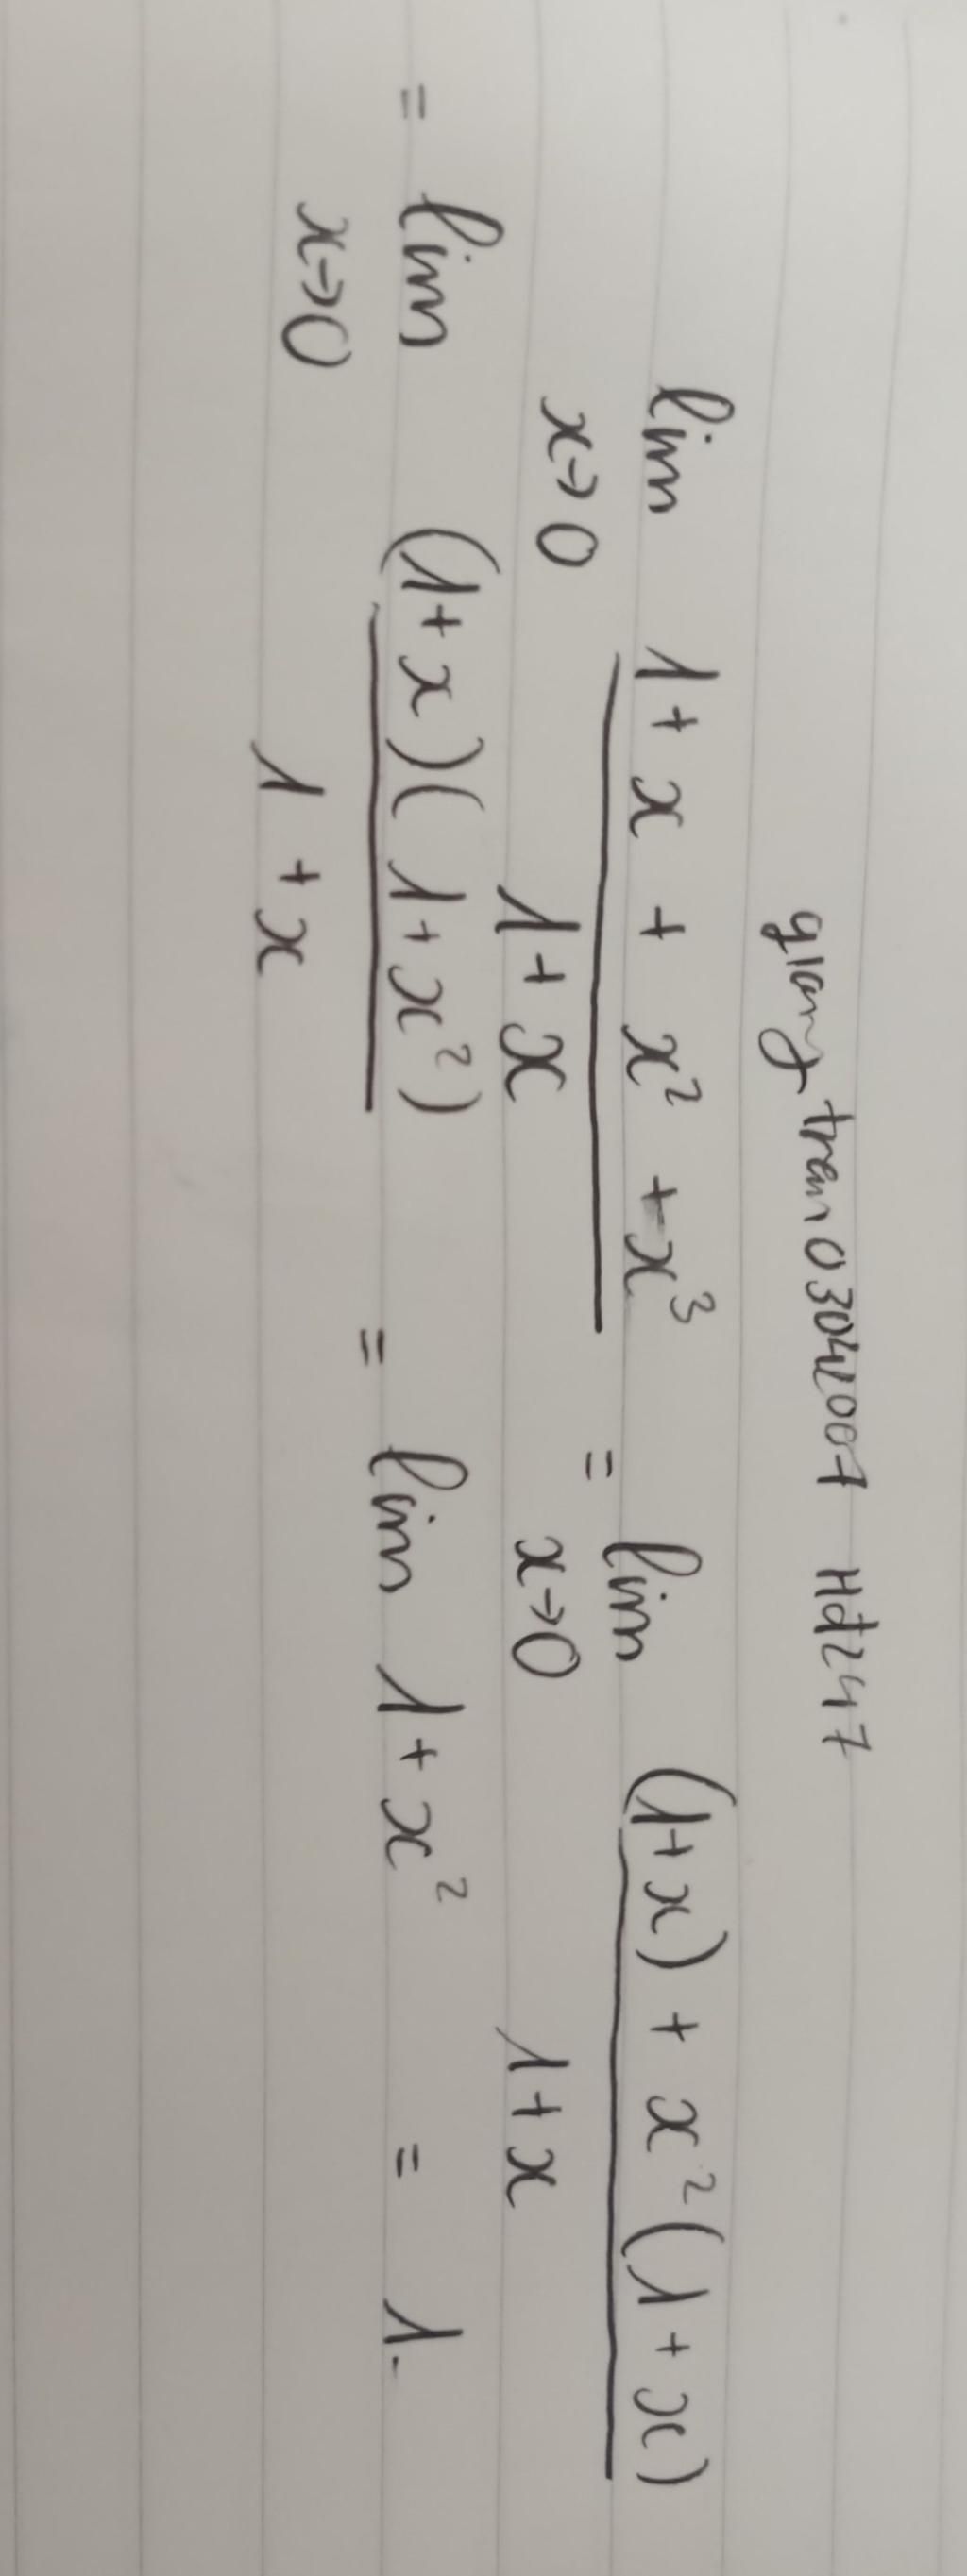 giangtran03042007 Hd247
lim x→0 (1 + x + x² + x³)/(1 + x) = lim x→0 ((1+x) + x²(1+x))/(1+x)
= lim x→0 ((1+x)(1+x²))/(1+x) = lim 1+x² = 1.